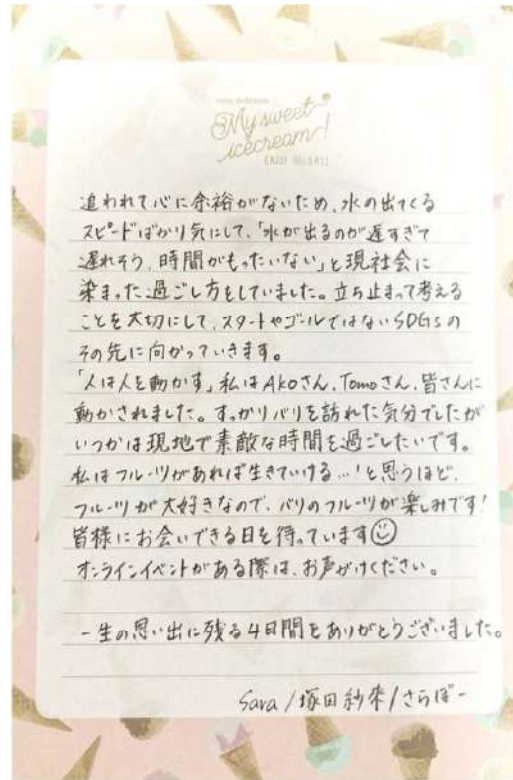 My sweet
icecream!
追われて心に余裕がないため、水の出てくる
スピードばかり気にして、「水が出るのが遅すぎて
遅れそう、時間がもったいない」と現社会に
染まった過ごし方をしていました。立ち止まって考える
ことを大切にして、スタートやゴールではないSDGsの
その先に向かっていきます。
「人は人を動かす」私はAkoさん、Tomoさん、皆さんに
動かされました。すっかりバリを訪れた気分でしたが
いつかは現地で素敵な時間を過ごしたいです。
私はフルーツがあれば生きていける…!と思うほど、
フルーツが大好きなので、バリのフルーツが楽しみです!
皆様にお会いできる日を待っています☺
オンラインイベントがある際は、お声がけください。
一生の思い出に残る4日間をありがとうございました。
Sara/塚田紗来/さらぼー